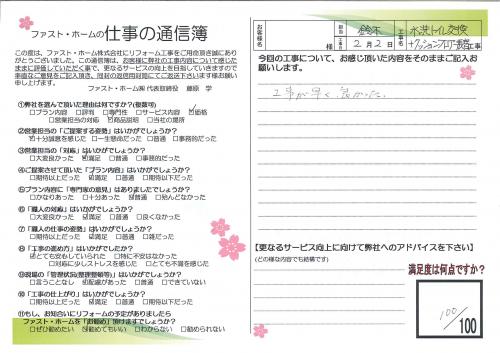 ファスト・ホームの仕事の通信簿
この度は、ファスト・ホーム株式会社にリフォーム工事をご用命頂き誠にありがとうございました。この通信簿は、お客様に弊社の工事内容について感じた
ままに評価していただく事で、更なるサービスの向上を目指していきますので
率直なご意見をご記入頂き、同封の返信用封筒にてご返送下さいます様お願い
申し上げます。
ファスト・ホーム㈱ 代表取締役 藤原 学
①弊社を選んで頂いた理由は何ですか?(複数可)
□プラン内容 □評判 □専門性 □サービス内容 ☑価格
□担当者の対応 ☑商品説明 □当社の業界
②営業担当の「ご提案する姿勢」はいかがでしょうか?
☑十分誠意を感じた □一生懸命だった □普通 □事務的だった
③営業担当の「対応」はいかがでしょうか?
□大変良かった ☑満足 □普通 □事務的だった
④ご提案させて頂いた「プラン内容」はいかがでしたか?
□期待以上だった ☑満足 □普通 □期待以下だった
⑤プラン内容に「専門家の意見」はありましたでしょうか?
□かなりあった □十分あった ☑普通 □殆んどなかった
⑥「職人の対応」はいかがでしたでしょうか?
□大変良かった ☑満足 □普通 □良くなかった
⑦「職人の仕事の姿勢」はいかがでしたでしょうか?
□期待以上だった ☑満足 □普通 □雑だった
⑧「工事の進め方」はいかがでしたか?
☑とても安心していられた □特に不安はなかった
□対応に少しストレスを感じた □とても不満を感じた
⑨現場の「管理状況(整理整頓等)」はいかがでしたでしょうか?
□言うことなし ☑配慮があった □普通 □できていない
⑩「工事の仕上がり」はいかがでしたでしょうか?
□期待以上だった ☑満足だった □普通 □期待以下だった
⑪もし、お知合いにリフォームの予定がありましたら
ファスト・ホームを「お勧め」頂けますでしょうか?
□ぜひ勧めたい ☑勧めてもいい □わからない □勧められない
お客様名 様
担当 鈴木
工事日 2月2日
工事名 水洗トイレ交換
+クッションフロアー 工事
今回の工事について、お感じ頂いた内容をそのままご記入お
願いします。
工事が早く、良かった。
【更なるサービス向上に向けて弊社へのアドバイスを下さい】
(どの様な内容でも結構です)
満足度は何点ですか?
100/100